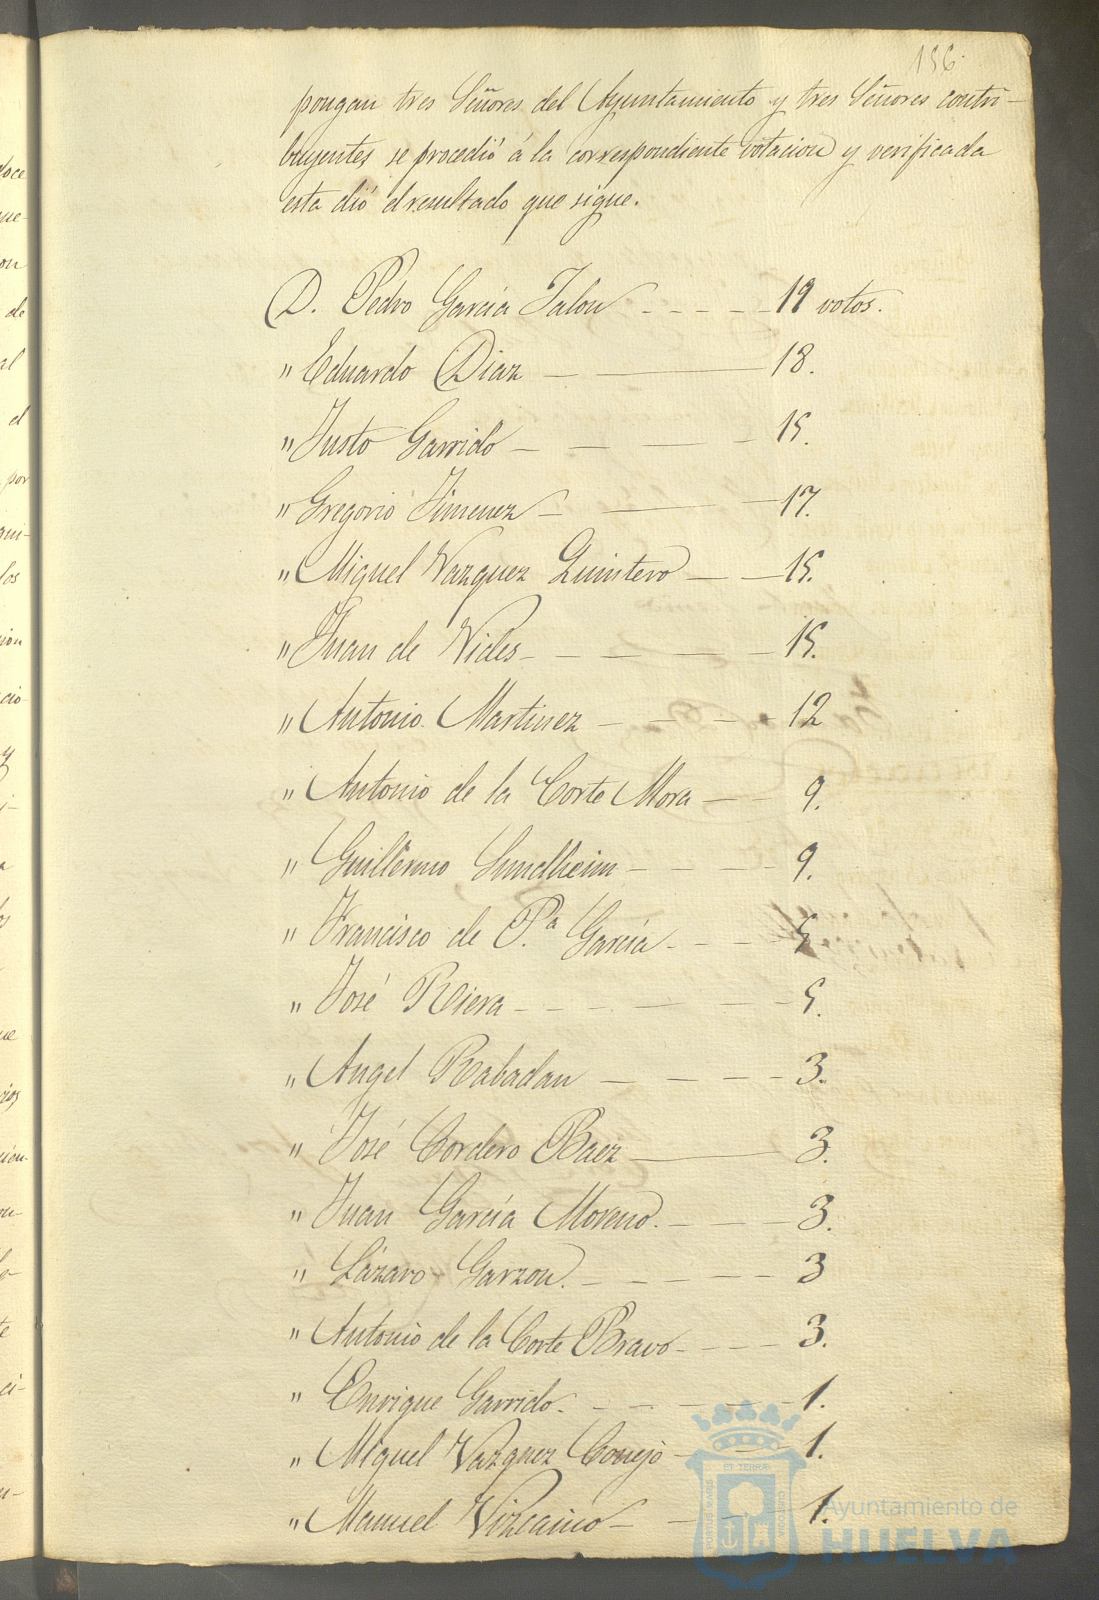 156
pongan tres Señores del Ayuntamiento y tres Señores contri-
buyentes se procedió á la correspondiente votacion y verificada
esta dió el resultado que sigue.
D. Pedro García Jalon - - - - - 19 votos.
" Eduardo Diaz — — 18.
" Justo Garrido — — — - 15.
" Gregorio Jimenez — — — 17.
" Miguel Vazquez Quintero — — 15.
" Juan de Vides - - — — - - 15.
" Antonio Martinez - - - - - 12
" Antonio de la Corte Mora — - 9.
" Guillermo Sundheim - - - - - 9.
" Francisco de P.ª García - - - - 5.
" José Riera - - - - — - - 5.
" Angel Rabadan - - - - - 3.
" José Cordero Baez — 3.
" Juan García Moreno. - - - - 3.
" Lázaro Garzon. - - - - - - 3
" Antonio de la Corte Bravo - - - - 3.
" Enrique Garrido. - - - - - - 1.
" Miguel Vazquez Conejo - - - 1.
" Manuel Vizcaino - - - - 1.
doce
que-
on
de
al
el
por
los
cio-
y
ET TERRÆ
Ayuntamiento de
HUELVA